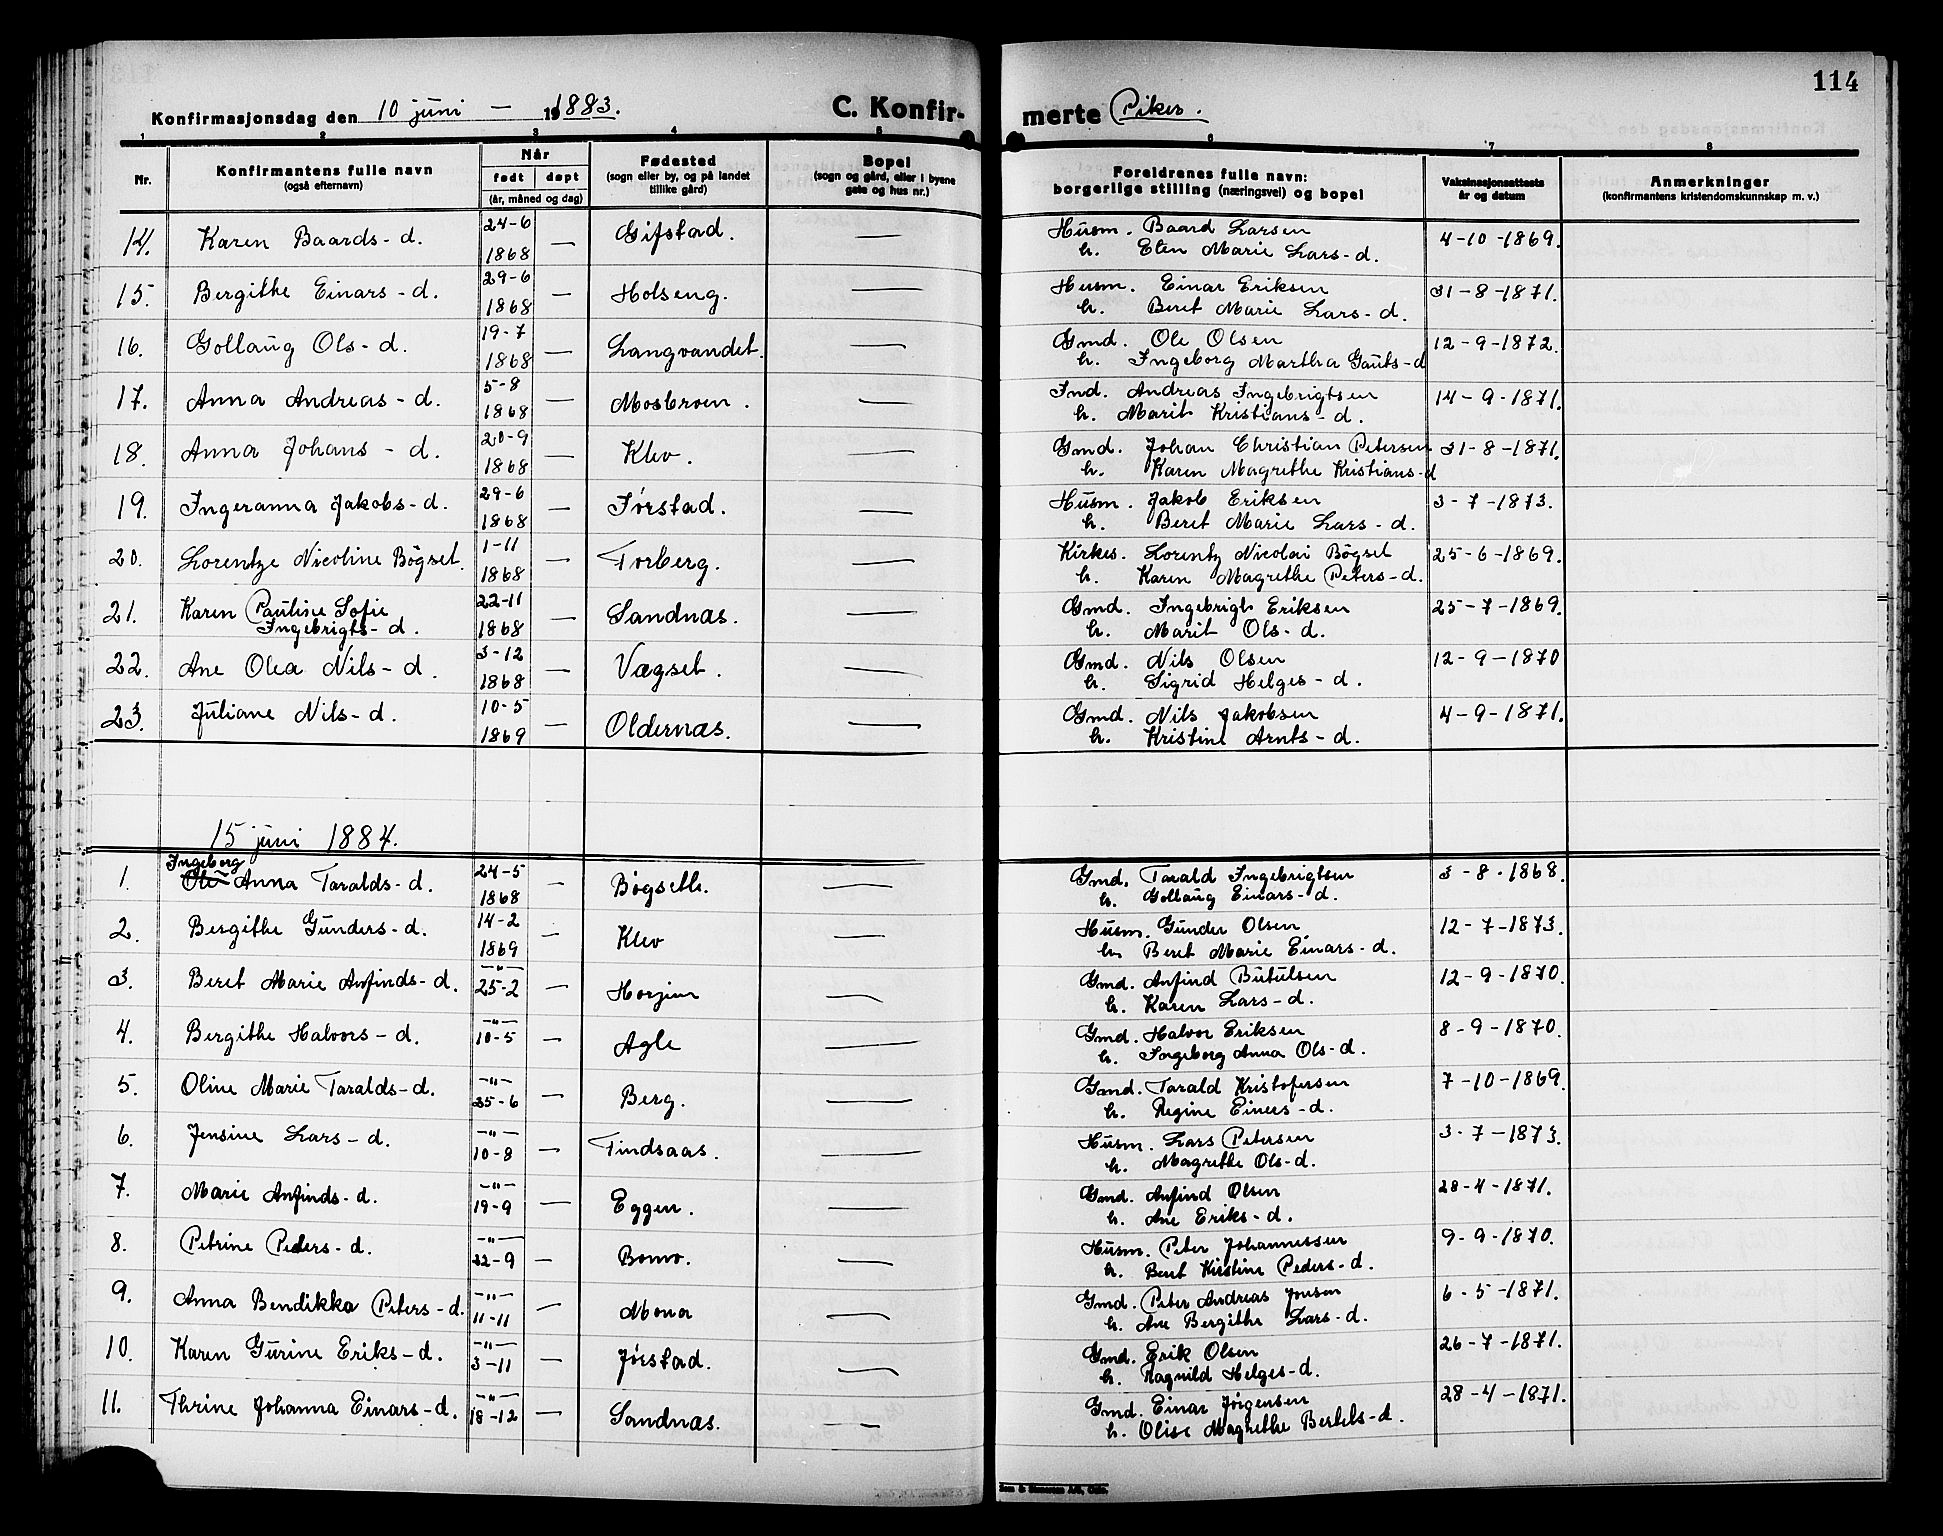 114
Konfirmasjonsdag den 10 juni — 19 1883. C. Konfir- merte Piker.
1 2 3 4 5 6 7 8
Nr. Konfirmantens fulle navn (også efternavn) Når født døpt (år, måned og dag) Fødested (sogn eller by, og på landet tillike gård) Bopel (sogn og gård, eller i byene gate og hus nr.) Foreldrenes fulle navn: borgerlige stilling (næringsvei) og bopel Vaksinasjonsattests år og datum Anmerkninger (konfirmantens kristendomskunnskap m. v.)
14. Karen Baards-d. 24-6 1868 — Gifstad. — Husm. Baard Larsen 4-10-1869.
h. Elen Marie Lars-d.
15. Bergithe Einars-d. 29-6 1868 — Holseng. — Husm. Einar Eriksen 31-8-1871.
h. Beret Marie Lars-d.
16. Gollaug Ols-d. 19-7 1868 — Langvandet. — Gmd. Ole Olsen 12-9-1872.
h. Ingeborg Martha Gauts-d
17. Anna Andreas-d. 5-8 1868 — Mosbroen. — Ind. Andreas Ingebrigtsen 14-9-1871.
h. Marit Kristians-d.
18. Anna Johans-d. 20-9 1868 — Klev. — Gmd. Johan Christian Petersen 31-8-1871.
h. Karen Magrethe Kristians-d
19. Ingeranna Jakobs-d. 29-6 1868 — Jørstad. — Husm. Jakob Eriksen 3-7-1873.
h. Beret Marie Lars-d.
20. Lorentze Nicoline Bøgset. 1-11 1868 — Torberg. — Kirkes. Lorentz Nicolai Bøgset 25-6-1869.
h. Karen Magrethe Peters-d.
21. Karen Pauline Sofie Ingebrigts-d. 22-11 1868 — Sandnæs. — Gmd. Ingebrigt Eriksen 25-7-1869.
h. Marit Ols-d.
22. Ane Olea Nils-d. 3-12 1868 — Vægset. — Gmd. Nils Olsen 12-9-1870
h. Sigrid Helges-d.
23. Juliane Nils-d. 10-5 1869 — Oldernæs. — Gmd. Nils Jakobsen 4-9-1871.
h. Kristine Arnts-d.
15 juni 1884.
1. Ingeborg Anna Taralds-d. 24-5 1868 — Bøgseth. — Gmd. Tarald Ingebrigtsen 3-8-1868.
h. Gollaug Einars-d.
2. Bergithe Gunders-d. 14-2 1869 — Klev — Husm. Gunder Olsen 12-7-1873.
h. Beret Marie Einars-d.
3. Beret Marie Anfinds-d. —"— 25-2 — Horjem — Gmd. Anfind Butulsen 12-9-1870.
h. Karen Lars-d.
4. Bergithe Halvors-d. —"— 10-5 — Agle — Gmd. Halvor Eriksen 8-9-1870.
h. Ingeborg Anna Ols-d.
5. Oline Marie Taralds-d. —"— 25-6 — Berg. — Gmd. Tarald Kristofersen 7-10-1869.
h. Regine Einers-d.
6. Jensine Lars-d. —"— 10-8 — Tindsaas. — Husm. Lars Petersen 3-7-1873.
h. Magrethe Ols-d.
7. Marie Anfinds-d. —"— 19-9 — Eggen. — Gmd. Anfind Olsen 28-4-1871.
h. Ane Eriks-d.
8. Petrine Peders-d. —"— 22-9 — Bomo. — Husm. Peter Johannessen 9-9-1870.
h. Beret Kirstine Peders-d.
9. Anna Bendikka Peters-d. —"— 11-11 — Mona — Gmd. Peter Andreas Jonsen 6-5-1871.
h. Ane Bergithe Lars-d.
10. Karen Gurine Eriks-d. —"— 3-11 — Jørstad. — Gmd. Erik Olsen 26-7-1871.
h. Ragnild Helges-d.
11. Thrine Johanna Einars-d. —"— 18-12 — Sandnæs. — Gmd. Einar Jørgensen 28-4-1871.
h. Olise Magrethe Bertels-d.